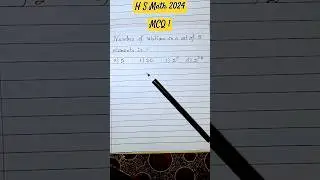 H S Math 2024
MCQ !
Number of relations on a set of 5
elements is -
a) 5 b) 25 c) 2⁵ d) 2²⁵